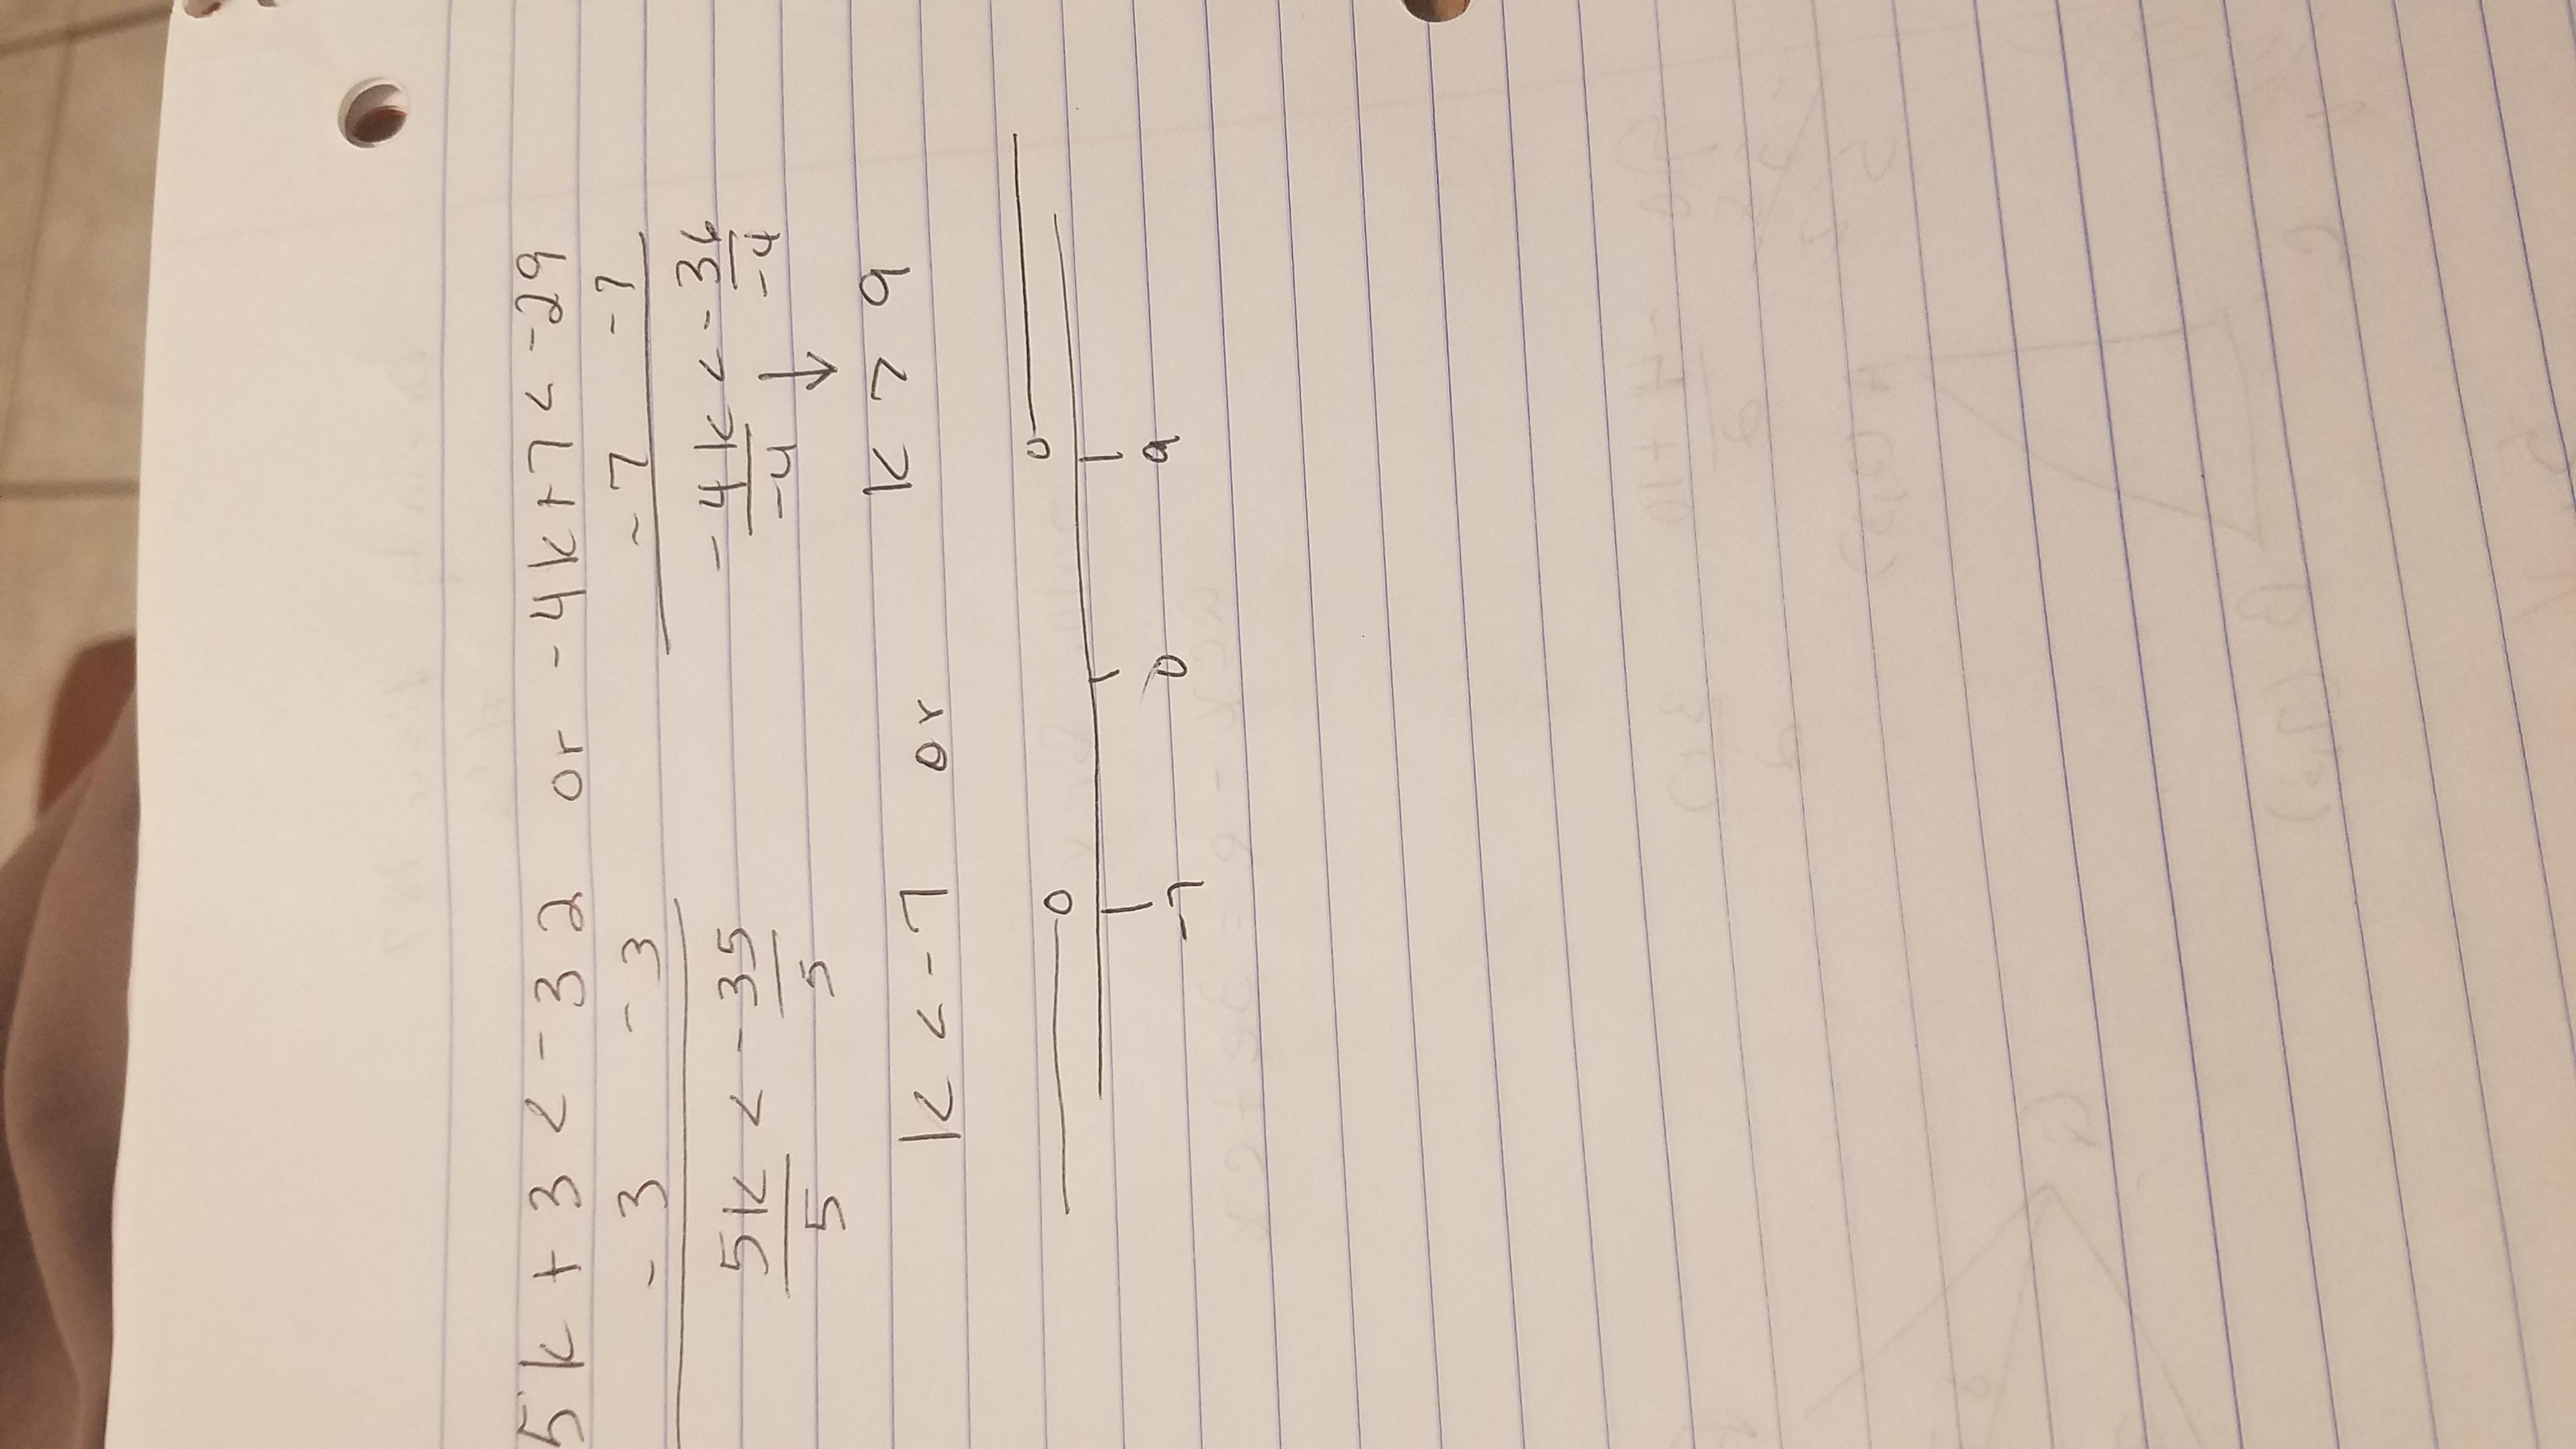 5k + 3 < -32 or -4k + 7 < -29
-3 -3 -7 -7
5k < -35 -4k < -36
5 5 -4 -4
k < -7 or k > 9
-7 0 9